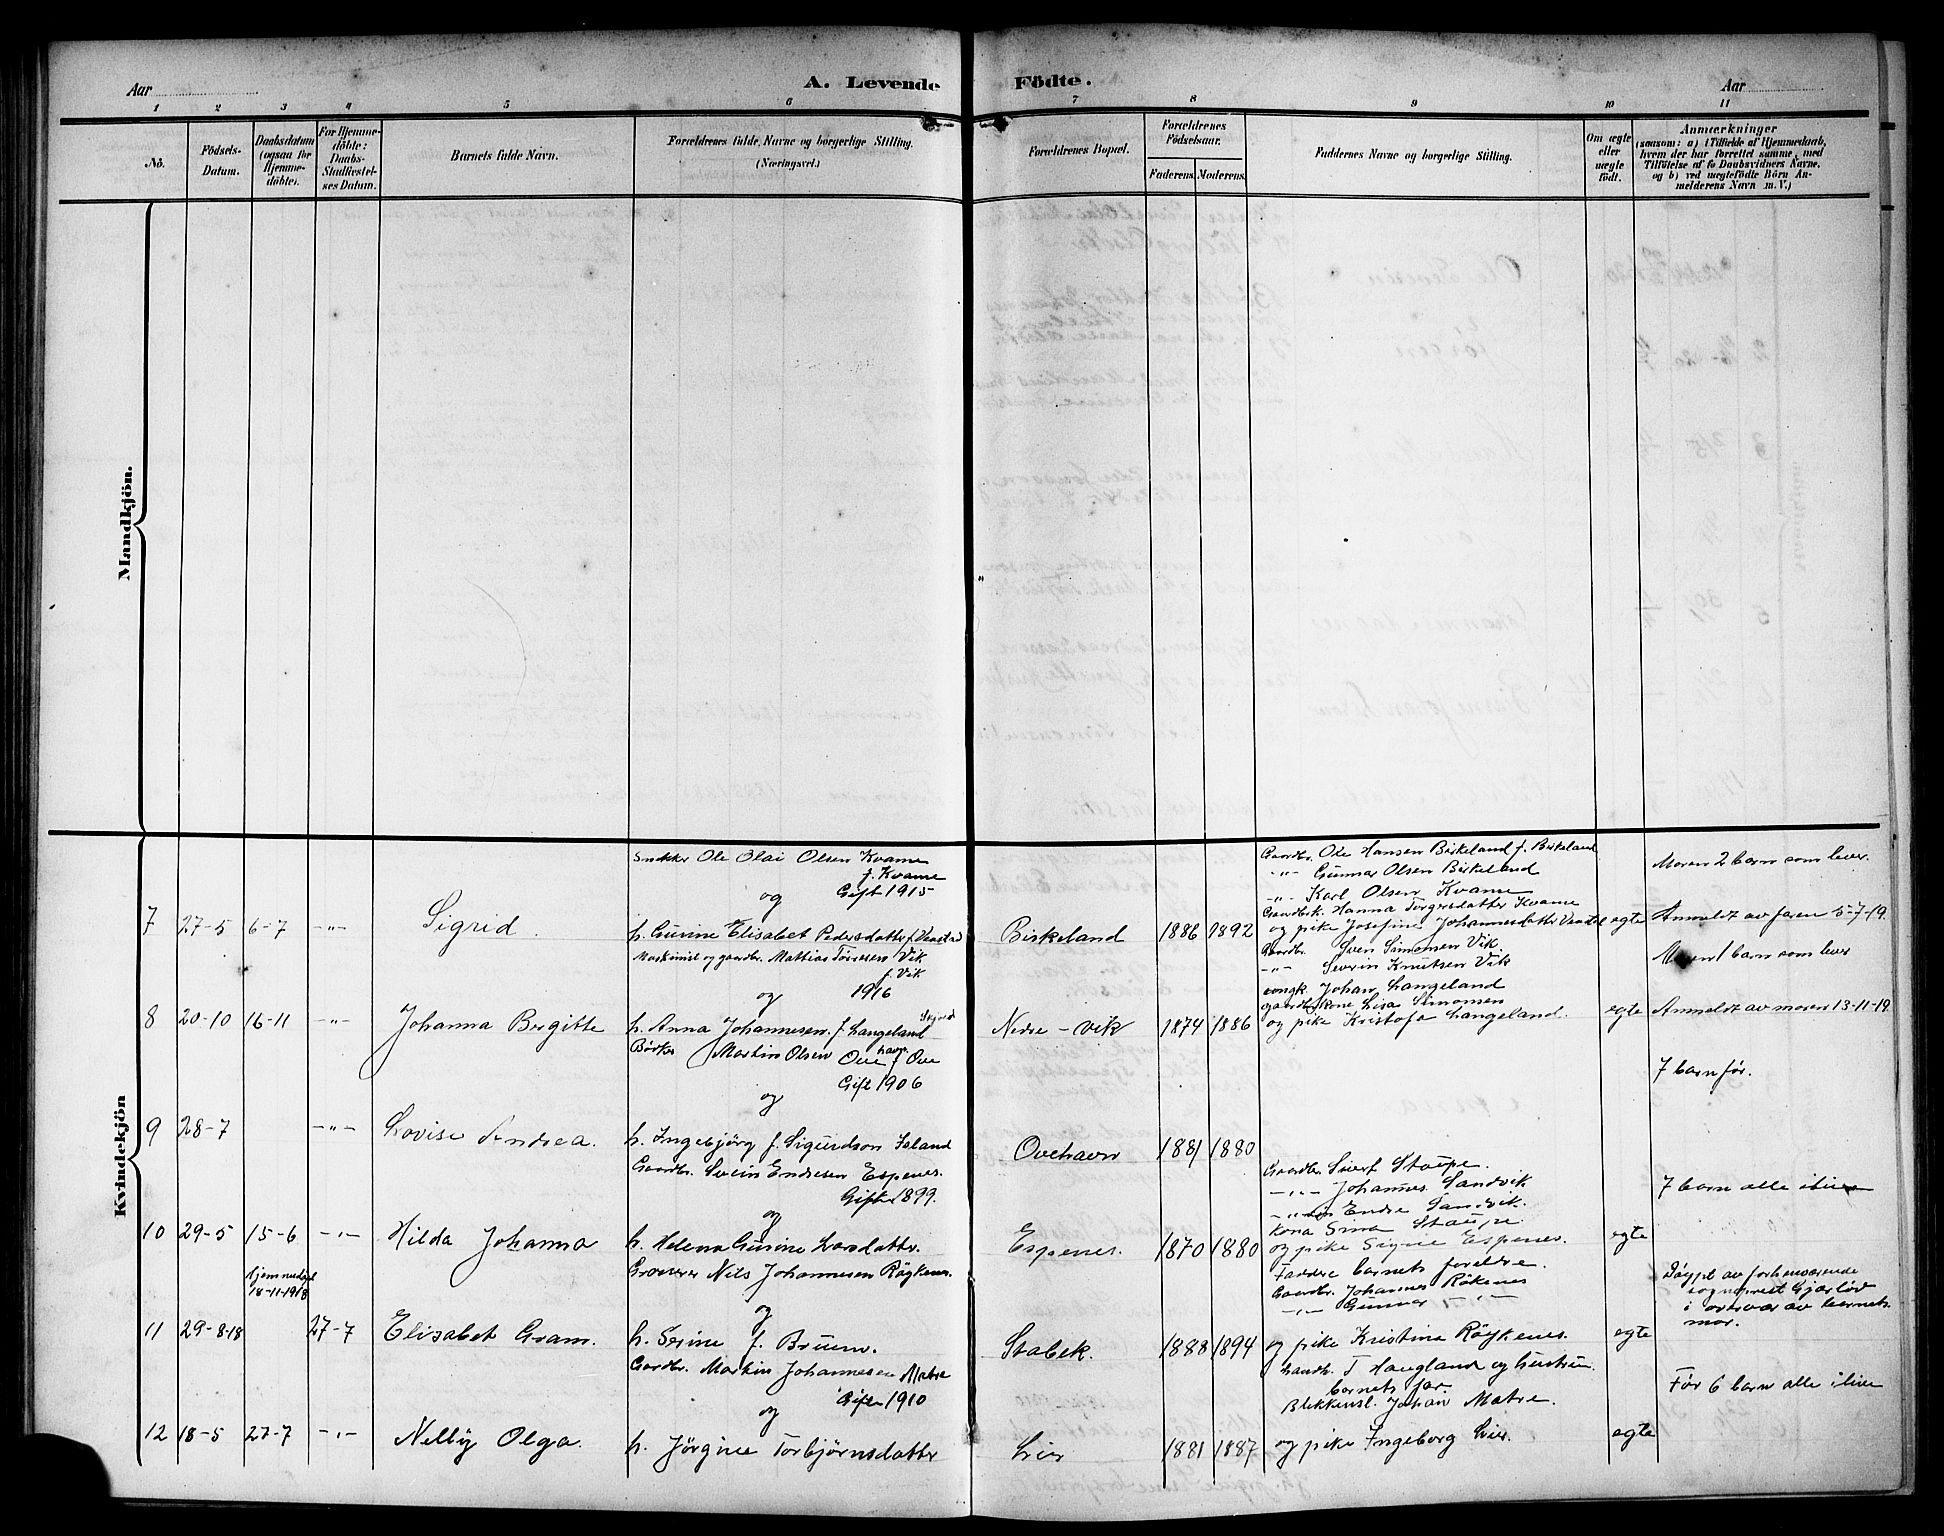 Aar
A. Levende Födte.
Aar
1 2 3 4 5 6 7 8 9 10 11
No.
Födsels-
Datum.
Daabsdatum
(ogsaa for
Hjemme-
döbte).
For Hjemme-
döbte:
Daabs-
Stadfæstel-
ses Datum.
Barnets fulde Navn.
Forældrenes fulde Navne og borgerlige Stilling.
(Næringsvei.)
Forældrenes Bopæl.
Forældrenes
Födselsaar.
Faderens. Moderens.
Faddernes Navne og borgerlige Stilling.
Om ægte
eller
uægte
födt.
Anmærkninger
(saasom: a) i Tilfælde af Hjemmedaab,
hvem der har forrettet samme, med
Tilföielse af to Daabsvidners Navne,
og b) ved uægtefödte Börn An-
melderens Navn m. V.)
Mandkjön.
Kvindekjön
7 27-5 6-7 -"- Sigrid.
Snekker Ole Olai Olsen Kvame
f. Kvame
Gift 1915
og
h. Gurine Elisabet Pedersdatter f. Vaastad
Birkeland 1886 1892
Gaardbr. Ole Hansen Birkeland f. Birkeland
-"- Gunnar Olsen Birkeland
-"- Karl Olsen Kvame
Gaardbr.k. Hanna Torgersdatter Kvame
og pike Josefine Johannesdatter
egte
Moren 2 barn som lever.
Anmeldt av faren 5-7-19.
8 20-10 16-11 -"- Johanna Birgitte
Maskinist og gaardbr. Mathias Torresen Vik
f. Vik
1916
og
h. Anna Johannesen f. Langeland
Nedre-vik 1874 1886
Gaardbr. Sven Simonsen Vik.
-"- Severin Knutsen Vik
ungk. Johan Langeland
gaardbr.kone Lisa Simonsen
og pike Kristofa Langeland.
egte
Moren 1 barn som lever
Anmeldt av moren 13-11-19.
9 28-7 -"- Lovise Andrea.
Bödker Martin Olsen Ovehavn f. Ove
Gift 1906
og
h. Ingebjörg f. Sigurdson Island
Ovehavn 1881 1880
7 barn för.
10 29-5 15-6 -"- Hilda Johanna
Gaardbr. Svein Endresen Espenes.
Gifte 1899.
og
h. Helena Gurine Larsdatter.
Espenes. 1870 1880
Gaardbr. Sivert Staupe.
-"- Johannes Sandvik
-"- Endre Sandvik.
Kona Sina Staupe.
og pike Signe Espenes.
egte
7 barn alle i live
11 29-8-18 Hjemmedöpt
18-11-1918 27-7 Elisabet Gram.
Nils Johannesen Röykenes.
og
h. Serine f. Bruun.
Stabek. 1888 1894
Faddere barnets foreldre.
Gaardbr. Johannes Rökenes
-"- Gunnar -"-
og pike Kristina Röykenes.
egte
Döypt av forhenværende
sogneprest Gjerlöv
i overvær av barnets
mor.
12 18-5 27-7 -"- Nelly Olga.
Gardbr. Martin Johannesen Matre
Gifte 1910
og
h. Jörgine Torbjörnsdatter
Lier 1881 1887
Landh. T Haugland og hustru.
barnets far.
Blikkensl. Johan Matre.
og pike Ingeborg Lier.
egte
För 6 barn alle i live